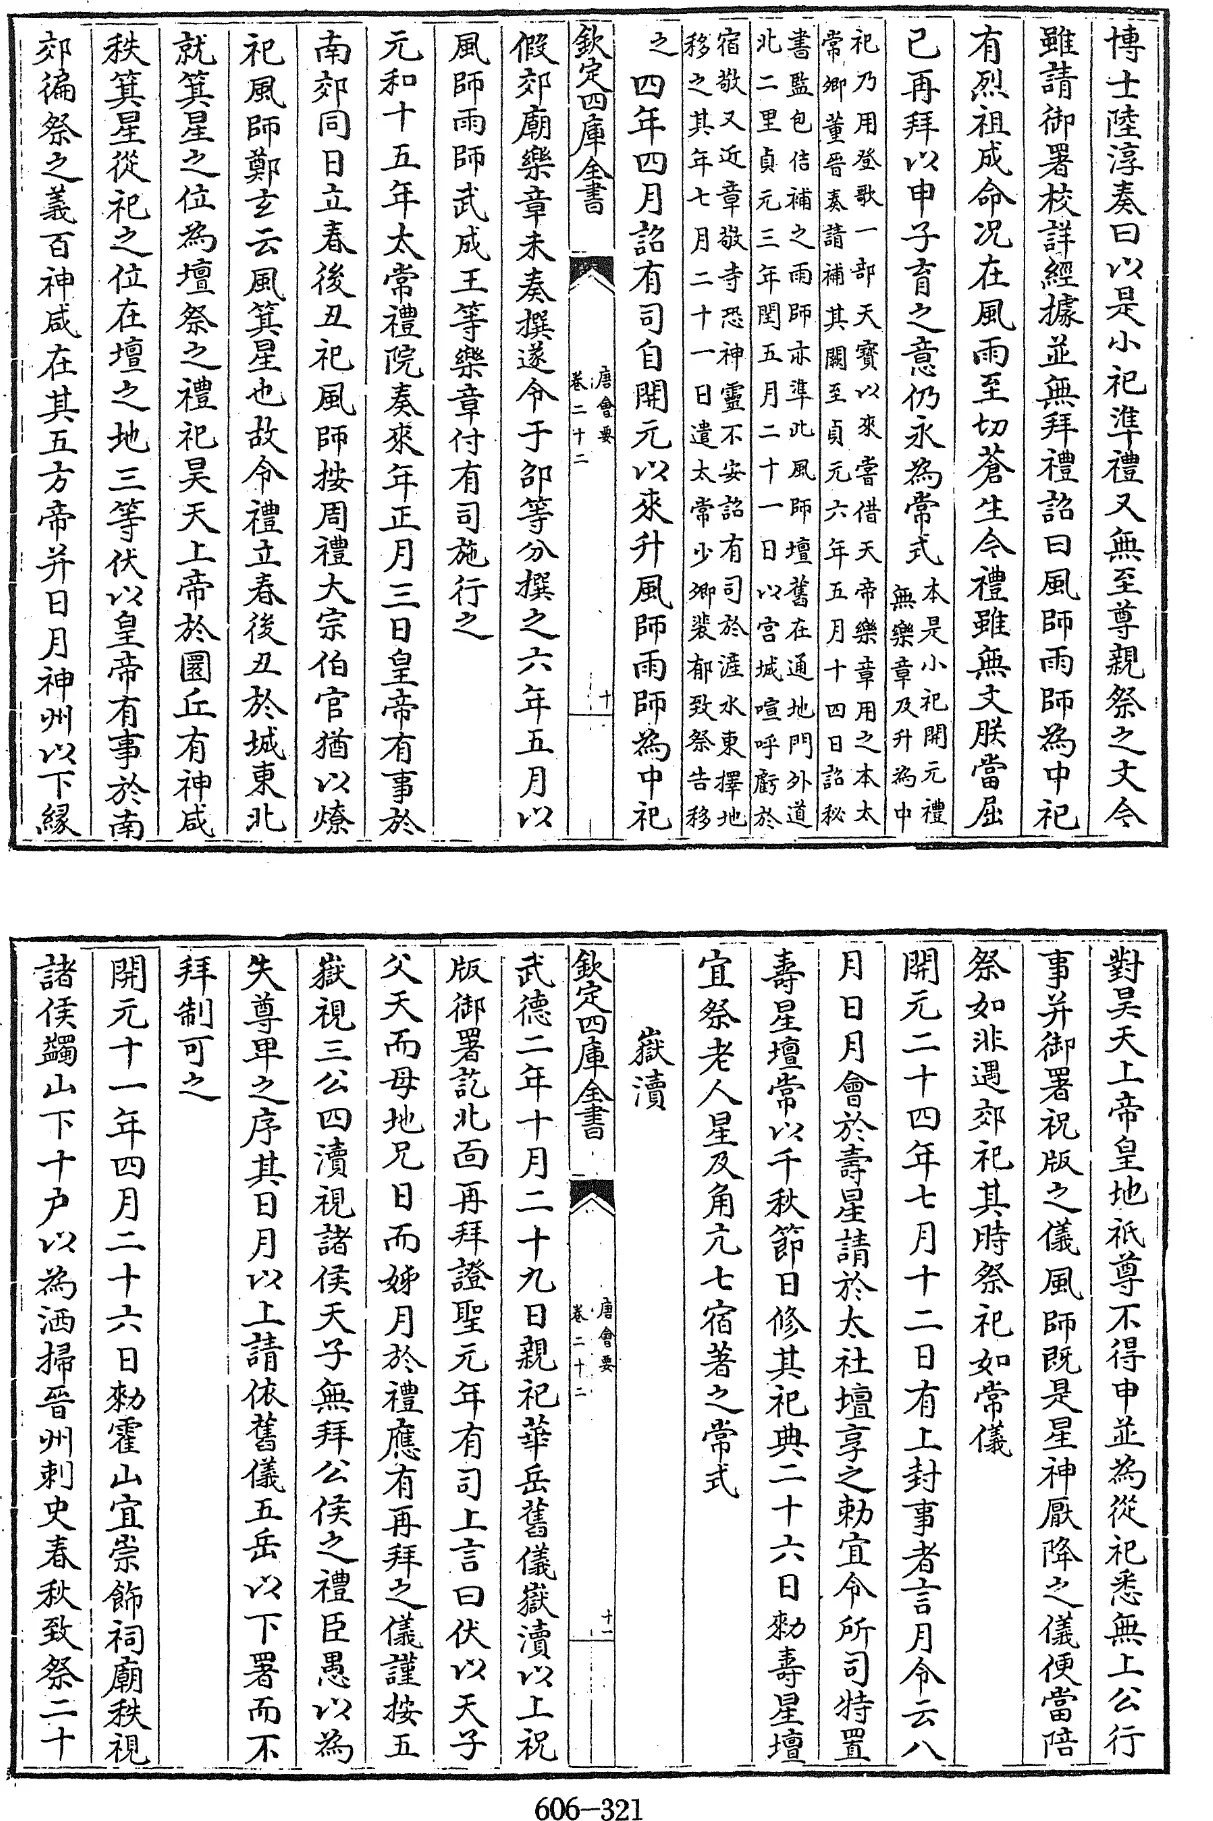 博士陸淳奏曰以是小祀準禮又無至尊親祭之文今
雖請御署校詳經據並無拜禮詔曰風師雨師為中祀
有烈祖成命况在風雨至切蒼生今禮雖無文朕當屈
已再拜以申子育之意仍永為常式本是小祀開元禮
無樂章及升為中
祀乃用登歌一部天寶以來嘗借天帝樂章用之本太
常卿董晉奏請補其闕至貞元六年五月十四日詔秘
書監包佶補之雨師亦準此風師壇舊在通地門外道
北二里貞元三年閏五月二十一日以宫城喧呼虧於
宿敬又近章敬寺恐神靈不安詔有司於滻水東擇地
移之其年七月二十一日遣太常少卿裴郁致祭告移
之
四年四月詔有司自開元以來升風師雨師為中祀
欽定四庫全書
唐會要
卷二十二
十
假郊廟樂章未奏撰遂令于邵等分撰之六年五月以
風師雨師武成王等樂章付有司施行之
元和十五年太常禮院奏來年正月三日皇帝有事於
南郊同日立春後丑祀風師按周禮大宗伯官猶以燎
祀風師鄭玄云風箕星也故今禮立春後丑於城東北
就箕星之位為壇祭之禮祀昊天上帝於圜丘有神咸
秩箕星從祀之位在壇之地三等伏以皇帝有事於南
郊徧祭之義百神咸在其五方帝并日月神州以下緣
對昊天上帝皇地祇尊不得申並為從祀悉無上公行
事并御署祝版之儀風師既是星神厭降之儀便當陪
祭如非遇郊祀其時祭祀如常儀
開元二十四年七月十二日有上封事者言月令云八
月日月會於壽星請於太社壇享之勅宜令所司特置
壽星壇常以千秋節日修其祀典二十六日勅壽星壇
宜祭老人星及角亢七宿著之常式
嶽瀆
欽定四庫全書
唐會要
卷二十二
十一
武德二年十月二十九日親祀華岳舊儀嶽瀆以上祝
版御署訖北面再拜證聖元年有司上言曰伏以天子
父天而母地兄日而姊月於禮應有再拜之儀謹按五
嶽視三公四瀆視諸侯天子無拜公侯之禮臣愚以為
失尊卑之序其日月以上請依舊儀五岳以下署而不
拜制可之
開元十一年四月二十六日勅霍山宜崇飾祠廟秩視
諸侯蠲山下十户以為洒掃晉州刺史春秋致祭二十
606-321